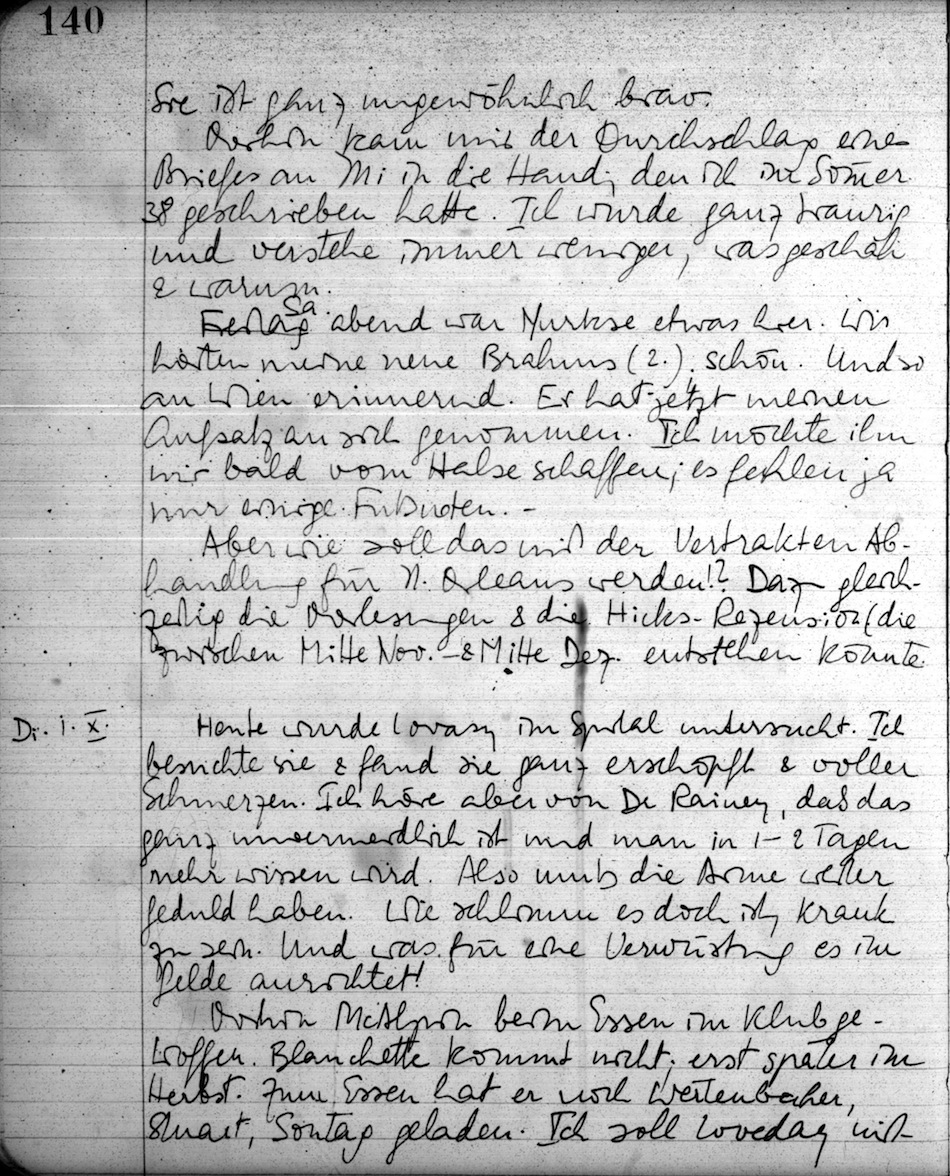 140
Sie ist ganz ungewöhnlich brav.
Vorhin kam mir der Durchschlag eines
Briefes an Mi in die Hand, den ich im Som̄er
38 geschrieben hatte. Ich wurde ganz traurig
und verstehe immer weniger, was geschah
& warum.
Sa.
Freitag abend war Nurkse etwas hier. Wir
hörten meine neue Brahms (2.). schön. Und so
an Wien erinnernd. Er hat jetzt meinen
Aufsatz an sich genommen. Ich möchte ihn
mir bald vom Halse schaffen; es fehlen ja
nur einige Fußnoten. –
Aber wie soll das mit der Vertrakten Ab-
handlung für N. Orleans werden!? Dazu gleich-
zeitig die Vorlesungen & die Hicks-Rezension (die
zwischen Mitte Nov. – & Mitte Dez. entstehen könnte.
Di. 1. X. Heute wurde Lovasy im Spital untersucht. Ich
besuchte sie & fand sie ganz erschöpft & voller
Schmerzen. Ich höre aber von Dr Rainey, daß das
ganz unvermeidlich ist und man in 1–2 Tagen
mehr wissen wird. Also muß die Arme weiter
Geduld haben. Wie schlimm es doch ist, krank
zu sein. Und was für eine Verwüstung es im
Gelde anrichtet!
Vorhin McAlpin beim Essen im Klub ge-
troffen. Blanchette kommt nicht; erst später im
Herbst. Zum Essen hat er noch Wertenbaker,
Stuart, Sontag geladen. Ich soll Loveday mit-